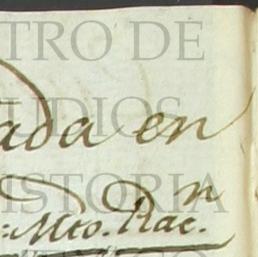 TRO DE
UDIOS
ada en
ISTORIA
n
:Mto. Rac.